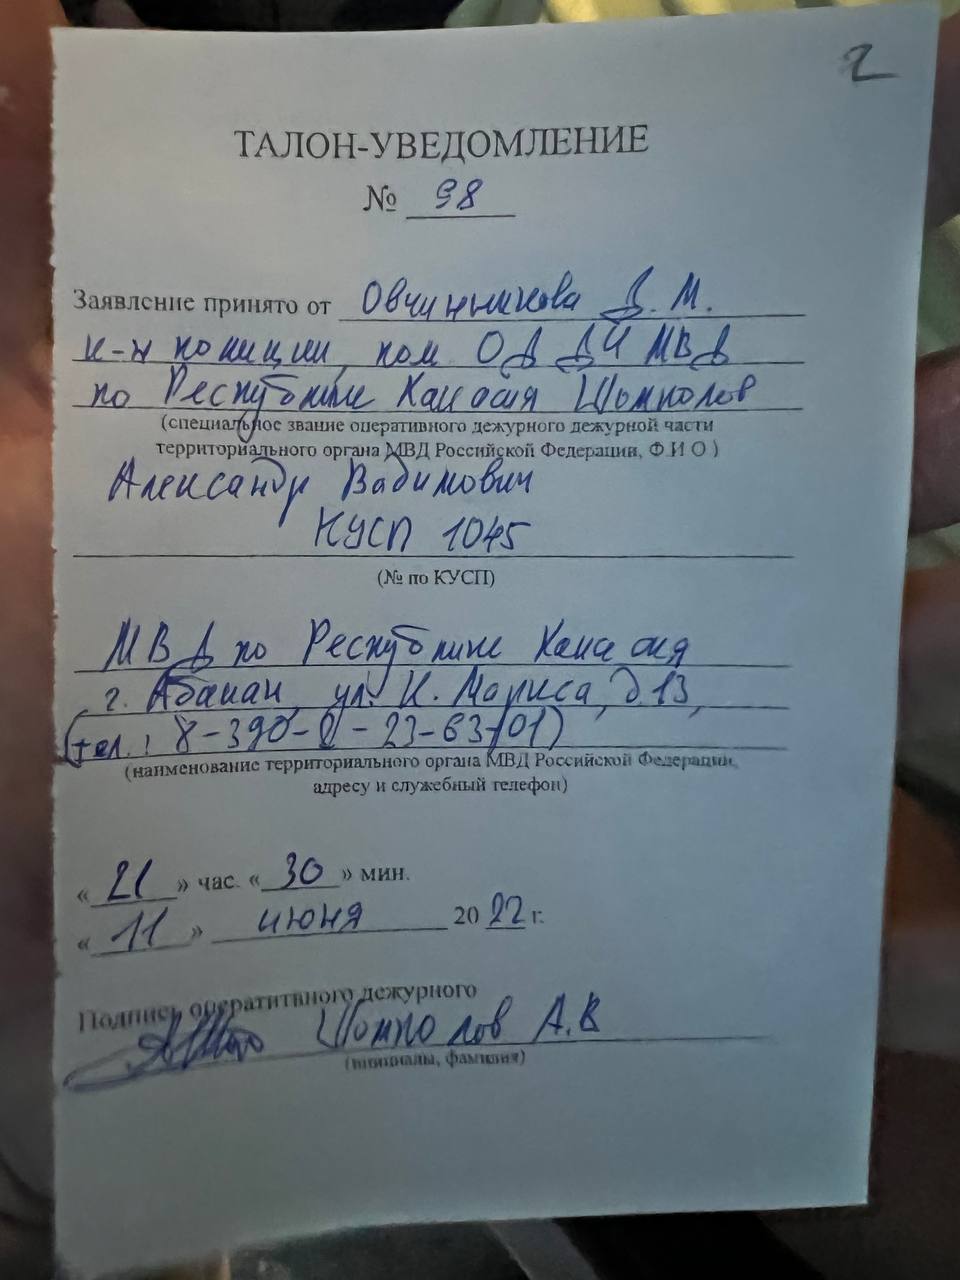 2
ТАЛОН-УВЕДОМЛЕНИЕ
№ 98
Заявление принято от Овчинникова В. М.
к-н полиции, пом ОД ДЧ МВД
по Республике Хакасия Шомполов
(специальное звание оперативного дежурного дежурной части
территориального органа МВД Российской Федерации, Ф И О )
Александр Вадимович
КУСП 1045
(№ по КУСП)
МВД по Республике Хакасия
г. Абакан, ул. К. Маркса, д 13,
(тел.: 8-390-2-23-63-01)
(наименование территориального органа МВД Российской Федерации,
адресу и служебный телефон)
« 21 » час. « 30 » мин.
« 11 » июня 20 22 г.
Подпись оператитвного дежурного
Шомполов А.В
(инициалы, фамилия)